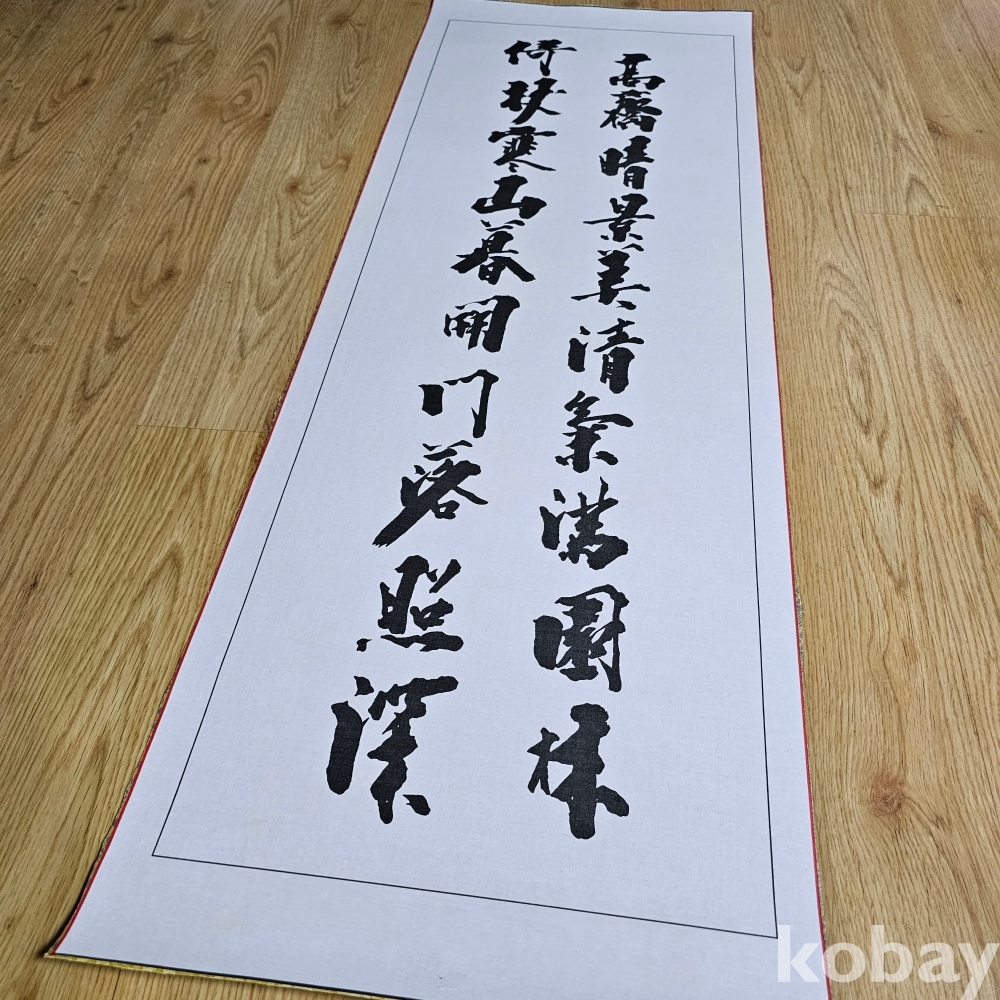 高齋晴景美清氣滿園林
倚杖寒山暮開門落照深
kobay